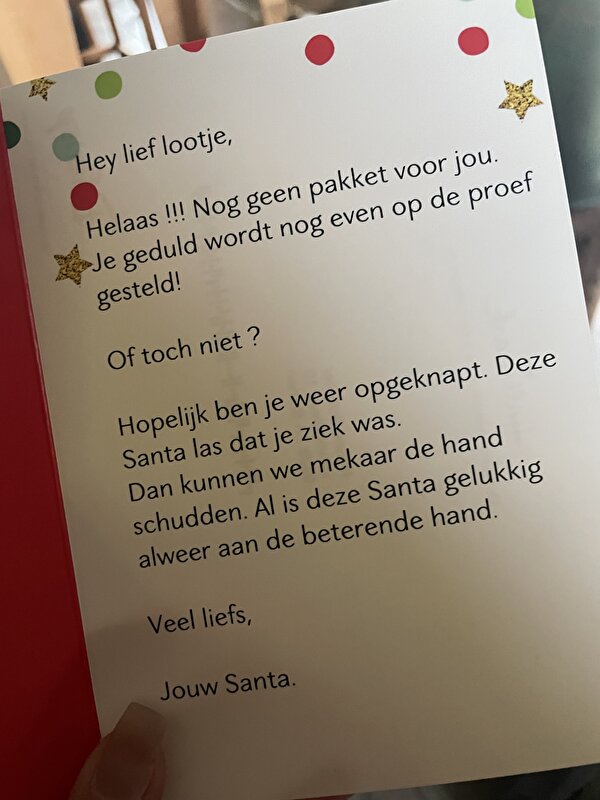 Hey lief lootje,
Helaas !!! Nog geen pakket voor jou.
Je geduld wordt nog even op de proef
gesteld!
Of toch niet ?
Hopelijk ben je weer opgeknapt. Deze
Santa las dat je ziek was.
Dan kunnen we mekaar de hand
schudden. Al is deze Santa gelukkig
alweer aan de beterende hand.
Veel liefs,
Jouw Santa.